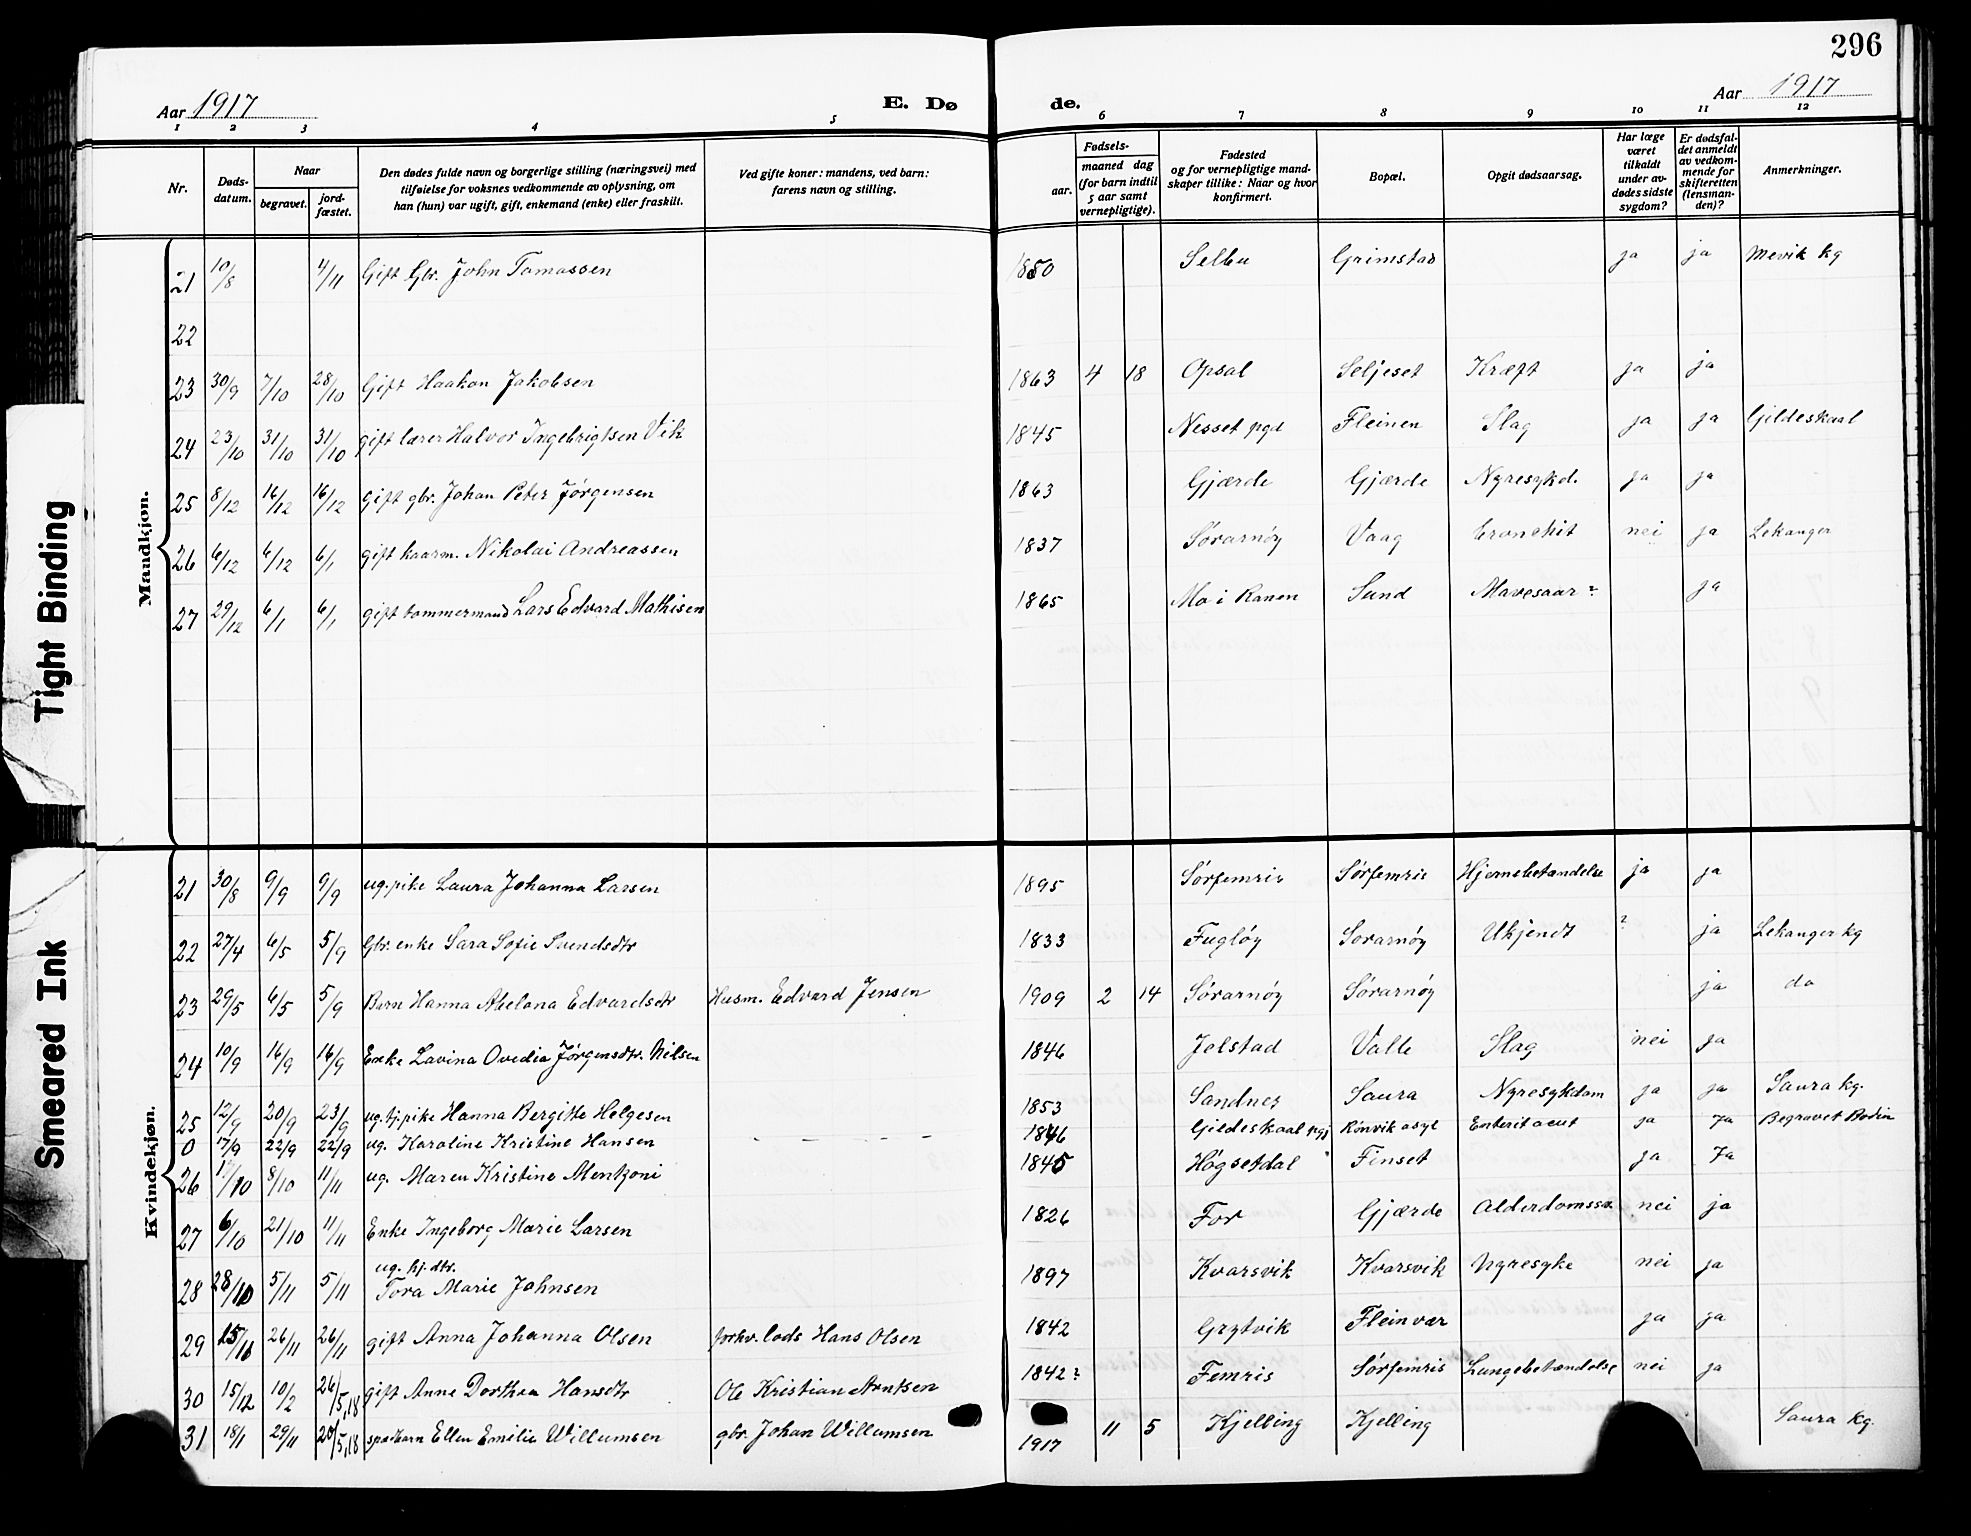 296
Aar 1917 E. Dø de. Aar 1917
1 2 3 4 5 6 7 8 9 10 11 12
Nr.
Døds-
datum.
Naar
begravet.
jord-
fæstet.
Den dødes fulde navn og borgerlige stilling (næringsvei) med
tilføielse for voksnes vedkommende av oplysning, om
han (hun) var ugift, gift, enkemand (enke) eller fraskilt.
Ved gifte koner: mandens, ved barn:
farens navn og stilling.
Fødsels-
aar.
maaned dag
(for barn indtil
5 aar samt
vernepligtige).
Fødested
og for vernepligtige mand-
skaper tillike: Naar og hvor
konfirmert.
Bopæl.
Opgit dødsaarsag.
Har læge
været
tilkaldt
under av-
dødes sidste
sygdom?
Er dødsfal-
det anmeldt
av vedkom-
mende for
skifteretten
(lensman-
den)?
Anmerkninger.
Mandkjøn.
21 10/8 4/11 Gift Gbr. John Tomassen 1850 Selbu Grimstad ja ja Mevik kg
22
23 30/9 7/10 28/10 Gift Haakon Jakobsen 1863 4 18 Opsal Seljeset Kræft ja ja
24 23/10 31/10 31/10 gift lærer Halvor Ingebrigtsen Vik 1845 Nesset pgd Fleinen Slag ja ja Gildeskaal
25 8/12 16/12 16/12 gift gbr. Johan Peter Jørgensen 1863 Gjærde Gjærde Nyresykd. ja ja
26 6/12 6/12 6/1 gift kaarm. Nikolai Andreassen 1837 Sørarnøy Vaag bronchit nei ja Lekanger
27 29/12 6/1 6/1 gift tømmermand Lars Edvard Mathisen 1865 Mo i Ranen Sund Mavesaar ? ja
Kvindekjøn.
21 30/8 9/9 9/9 ug. pike Laura Johanna Larsen 1895 Sørfemris Sørfemris Hjernebetændelse ja ja
22 27/4 6/5 5/9 Gbr. enke Sara Sofie Svendsdtr 1833 Fugløy Sørarnøy Ukjendt ? ja Lekanger kg
23 29/5 6/5 5/9 Barn Hanna Abelona Edvardsdtr Husm. Edvard Jensen 1909 2 14 Sørarnøy Sørarnøy ja do
24 10/9 16/9 16/9 Enke Lavina Ovedia Jørgensdtr. Nilsen 1846 Jelstad Valle Slag nei ja
25 12/9 20/9 23/9 ug. tj. pike Hanna Bergitte Helgesen 1853 Sandnes Saura Nyresykdom ja ja Saura kg.
0 17/9 22/9 22/9 ug. Karoline Kristine Hansen — — — — 1846 Gildeskaal pgj Rønvik asyl Enterit acut ja Ja Begravet Bodin
26 17/10 8/10 11/11 ug. Maren Kristine Mentzoni 1845 Høgsetdal Finset ja Ja
27 6/10 21/10 4/11 Enke Ingeborg Marie Larsen 1826 For Gjærde Alderdomssv. nei ja
ug. hj. dtr.
28 28/10 5/11 5/11 Tora Marie Johnsen 1897 Kvarsvik Kvarsvik Nyresyke nei ja
29 15/11 26/11 26/11 gift Anna Johanna Olsen forhv. lods Hans Olsen 1842 Grytvik Fleinvær ja ja
30 15/12 10/2 26/5,18 gift Anne Dorthea Hansdtr Ole Kristian Arntsen 1842? Femris Sørfemris Lungebetændelse nei ja
31 18/11 29/11 20/5,18 spædbarn Ellen Emilie Willumsen gbr. Johan Willumsen 1917 11 5 Kjelling Kjelling Saura kg.
Tight Binding
Smeared Ink